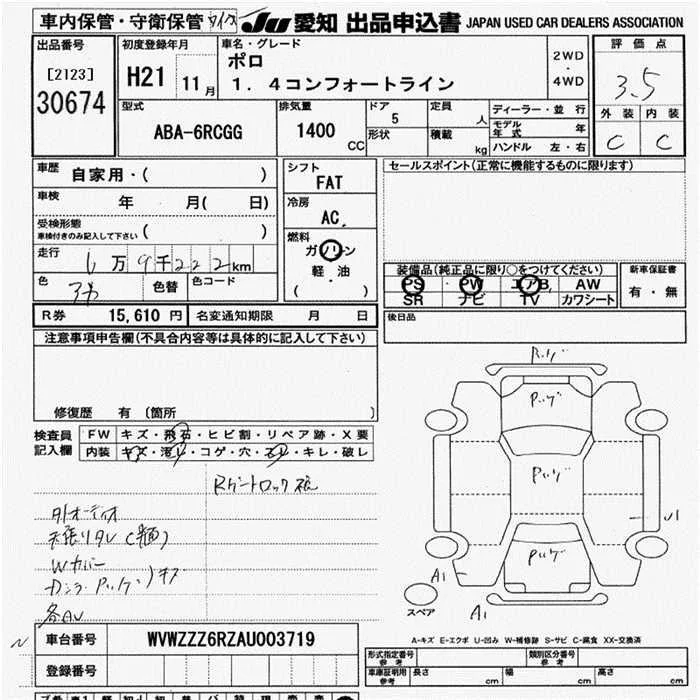 車内保管・守衛保管 JU 愛知 出品申込書 JAPAN USED CAR DEALERS ASSOCIATION
出品番号
[2123]
30674
初度登録年月
H21 11月
車名・グレード
ポロ
1．4コンフォートライン
2WD
・
4WD
評価点
3.5
外装 内装
C C
型式
ABA-6RCGG
排気量
1400
CC
ドア
5
形状
定員
人
積載
kg
ディーラー・並行
モデル年式 年
ハンドル 左・右
車歴
自家用・( )
車検
年 月( 日)
受検形態
車検付きのみ記入して下さい ( )
走行
万9千222km
色
色替
色コード
シフト
FAT
冷房
AC
燃料
ガソリン
軽・油
( )
セールスポイント(正常に機能するものに限ります)
装備品(純正品に限り○をつけてください)
PS・PW・エアB・AW
SR ナビ TV カワシート
新車保証書
有・無
R券 15,610円
名変通知期限 月 日
後日品
注意事項申告欄(不具合内容等は具体的に記入して下さい)
修復歴 有 〔箇所 〕
検査員
記入欄
FW キズ・飛石・ヒビ割・リペア跡・X要
内装 キズ・汚レ・コゲ・穴・スレ・キレ・破レ
Rゲートロック
外オーディオ
天張りタレ
Wカバー
キズ
Pハゲ
Pハゲ
Pハゲ
A1
A1
スペア
A-キズ E-エクボ U-凹み W-補修跡 S-サビ C-腐食 XX-交換済
車台番号
WVWZZZ6RZAU003719
登録番号
形式指定番号
参考
類別区分番号
参考
車庫証明用
参考
長さ 幅 高さ
cm cm cm